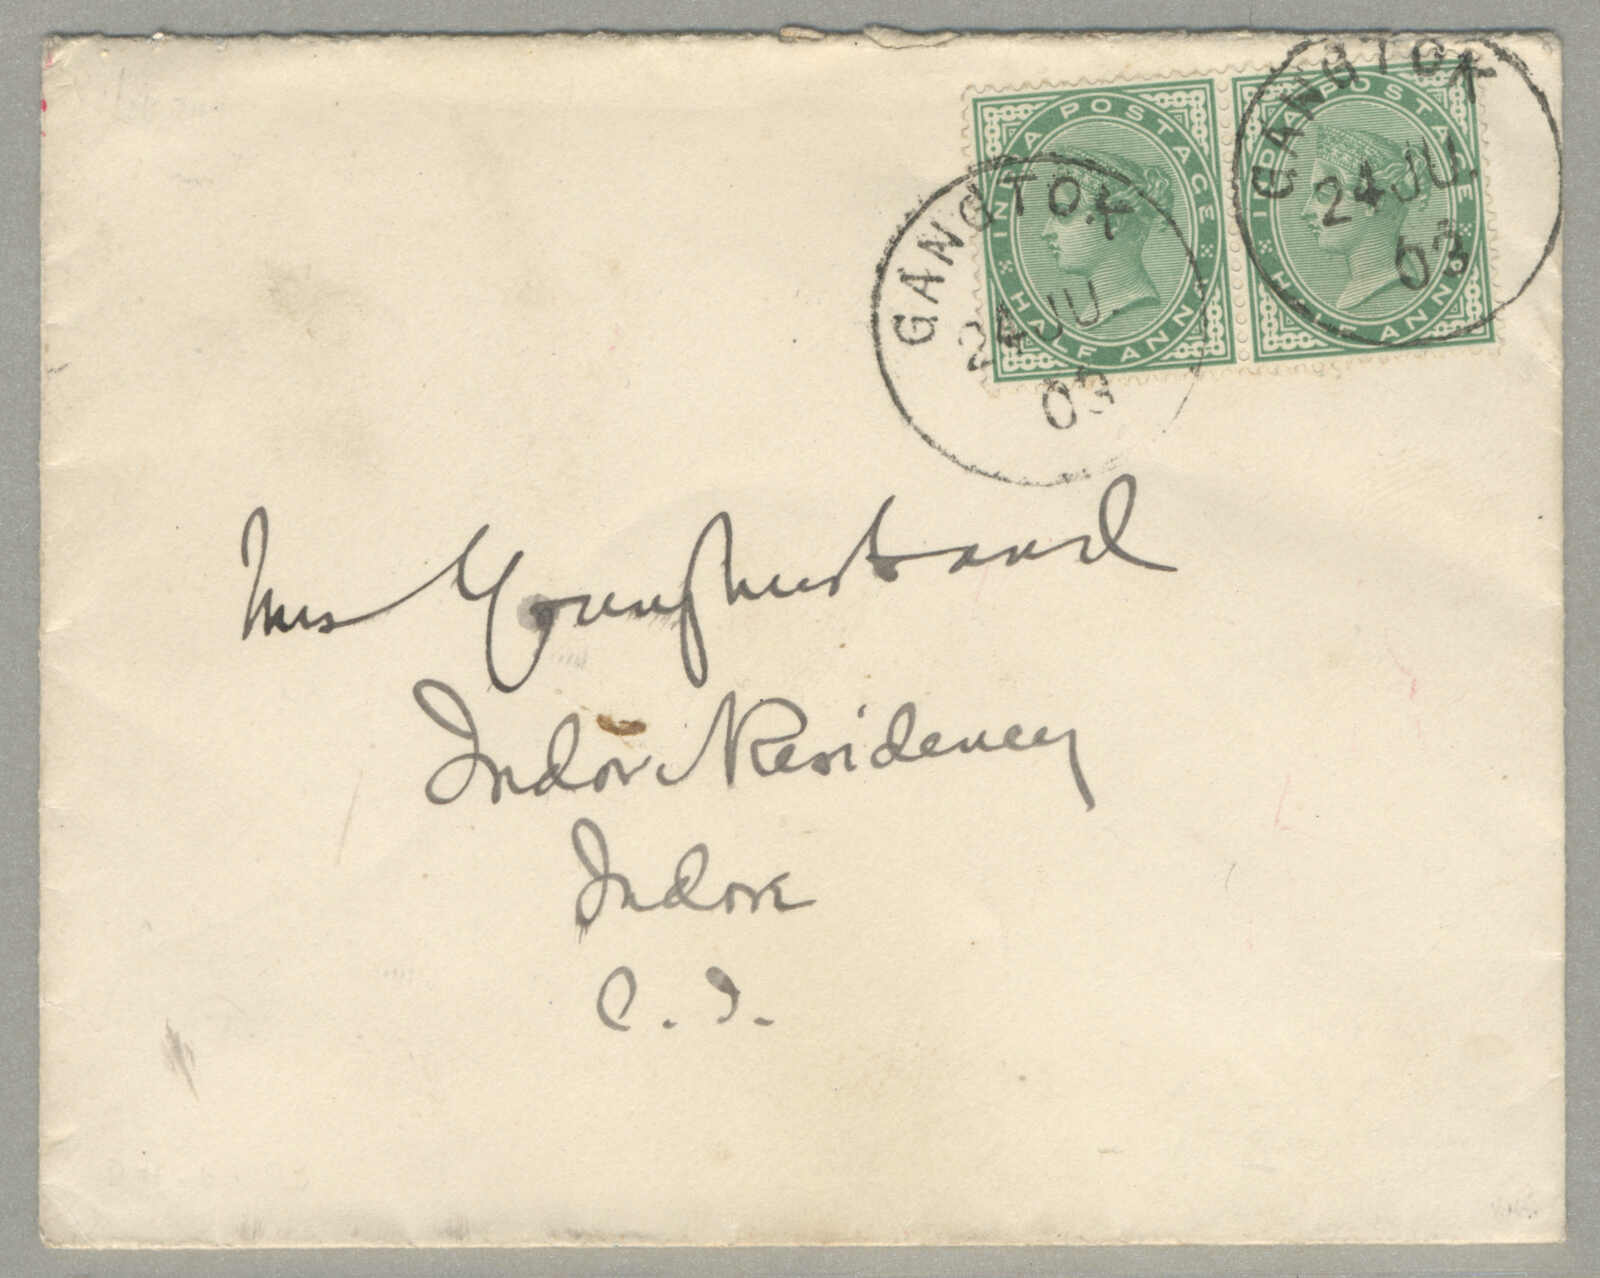 INDIA POSTAGE
HALF ANNA
INDIA POSTAGE
HALF ANNA
GANGTOK
24 JU.
03
GANGTOK
24 JU.
03
Mrs Younghusband
Indore Residency
Indore
C. I.